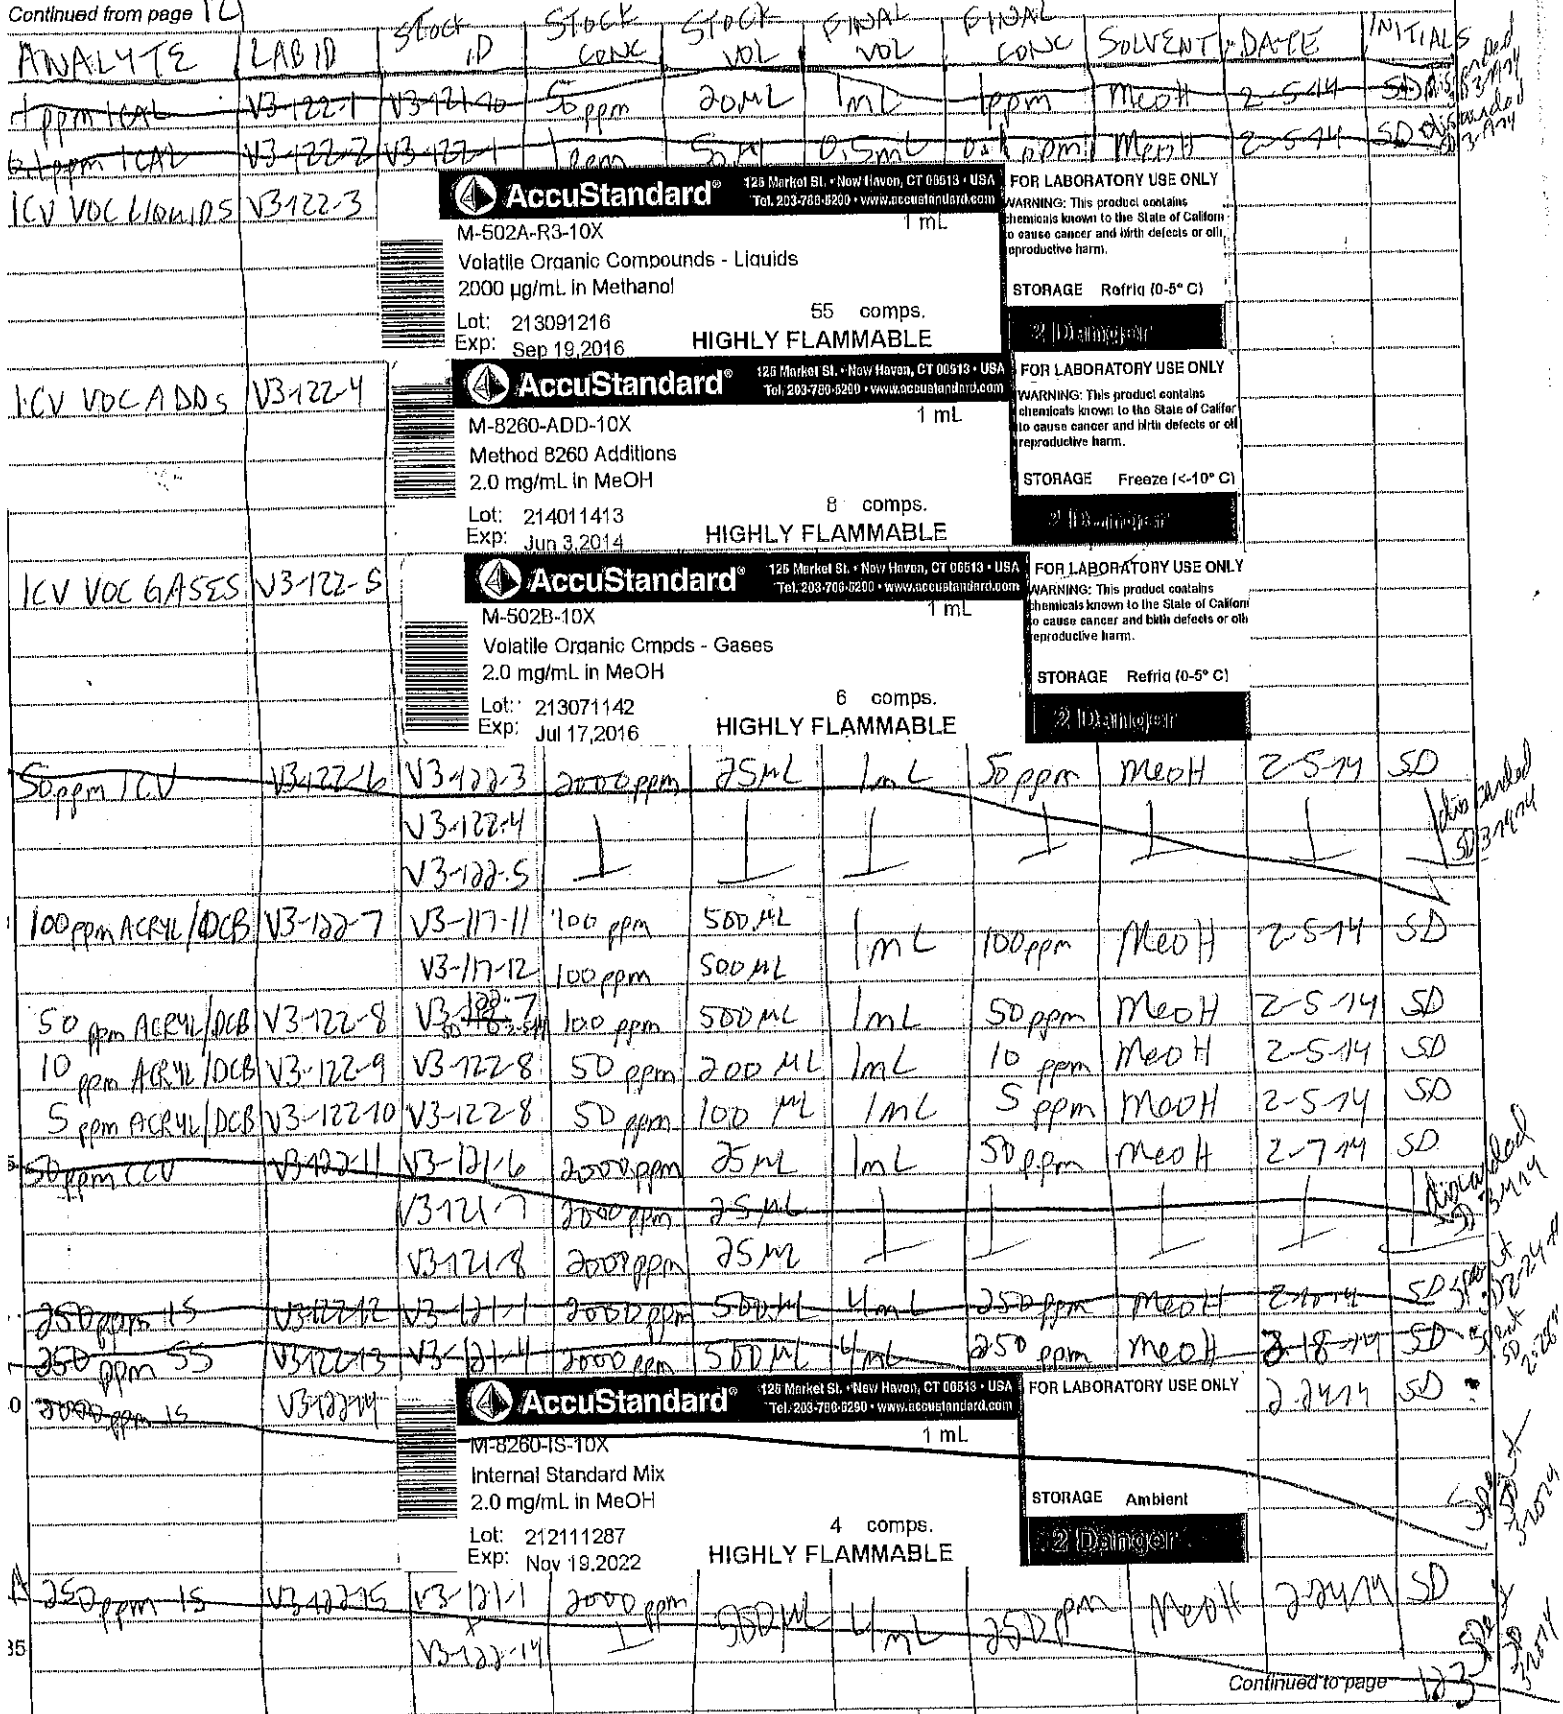 Continued from page 12
ANALYTE LAB ID STOCK ID STOCK CONC STOCK VOL FINAL VOL FINAL CONC SOLVENT DATE INITIALS
1 ppm ICAL V3-122-1 V3-121-10 50 ppm 20 µL 1 mL 1 ppm MeOH 2-5-14 SD discarded SD 3-14-14
0.1 ppm ICAL V3-122-2 V3-122-1 1 ppm 50 µL 0.5 mL 0.1 ppm MeOH 2-5-14 SD discarded 3-14-14
ICV VOC LIQUIDS V3-122-3
AccuStandard® 125 Market St. • New Haven, CT 06513 • USA
Tel. 203-786-5290 • www.accustandard.com
M-502A-R3-10X 1 mL
Volatile Organic Compounds - Liquids
2000 µg/mL in Methanol
Lot: 213091216 55 comps.
Exp: Sep 19,2016 HIGHLY FLAMMABLE
FOR LABORATORY USE ONLY
WARNING: This product contains
chemicals known to the State of Californ
to cause cancer and birth defects or oth
eproductive harm.
STORAGE Refrig (0-5° C)
2 Danger
ICV VOC ADDS V3-122-4
AccuStandard® 125 Market St. • New Haven, CT 06513 • USA
Tel. 203-786-5290 • www.accustandard.com
M-8260-ADD-10X 1 mL
Method 8260 Additions
2.0 mg/mL in MeOH
Lot: 214011413 8 comps.
Exp: Jun 3,2014 HIGHLY FLAMMABLE
FOR LABORATORY USE ONLY
WARNING: This product contains
chemicals known to the State of Califor
to cause cancer and birth defects or otl
reproductive harm.
STORAGE Freeze (<-10° C)
2 Danger
ICV VOC GASES V3-122-5
AccuStandard® 125 Market St. • New Haven, CT 06513 • USA
Tel. 203-786-5290 • www.accustandard.com
M-502B-10X 1 mL
Volatile Organic Cmpds - Gases
2.0 mg/mL in MeOH
Lot: 213071142 6 comps.
Exp: Jul 17,2016 HIGHLY FLAMMABLE
FOR LABORATORY USE ONLY
WARNING: This product contains
chemicals known to the State of Californ
o cause cancer and birth defects or oth
eproductive harm.
STORAGE Refrig (0-5° C)
2 Danger
50 ppm ICV V3-122-6 V3-122-3 2000 ppm 25 µL 1 mL 50 ppm MeOH 2-5-14 SD
V3-122-4 discarded
V3-122-5 SD 3-14-14
100 ppm ACRYL/DCB V3-122-7 V3-117-11 100 ppm 500 µL 1 mL 100 ppm MeOH 2-5-14 SD
V3-117-12 100 ppm 500 µL
50 ppm ACRYL/DCB V3-122-8 V3-122-7 100 ppm 500 µL 1 mL 50 ppm MeOH 2-5-14 SD
10 ppm ACRYL/DCB V3-122-9 V3-122-8 50 ppm 200 µL 1 mL 10 ppm MeOH 2-5-14 SD
5 ppm ACRYL/DCB V3-122-10 V3-122-8 50 ppm 100 µL 1 mL 5 ppm MeOH 2-5-14 SD
50 ppm CCV V3-122-11 V3-121-6 2000 ppm 25 µL 1 mL 50 ppm MeOH 2-7-14 SD
V3-121-7 2000 ppm 25 µL discarded
V3-121-8 2000 ppm 25 µL SD
250 ppm IS V3-122-12 V3-121-1 2000 ppm 500 µL 4 mL 250 ppm MeOH 2-10-14 SD spent SD 2-24-14
250 ppm SS V3-122-13 V3-121-4 2000 ppm 500 µL 4 mL 250 ppm MeOH 2-18-14 SD spent SD
2000 ppm IS V3-122-14 2-24-14 SD
AccuStandard® 125 Market St. • New Haven, CT 06513 • USA
Tel. 203-786-5290 • www.accustandard.com
M-8260-IS-10X 1 mL
Internal Standard Mix
2.0 mg/mL in MeOH
Lot: 212111287 4 comps.
Exp: Nov 19,2022 HIGHLY FLAMMABLE
FOR LABORATORY USE ONLY
STORAGE Ambient
2 Danger
Spent SD 3-20-14
250 ppm IS V3-122-15 V3-121-1 2000 ppm 500 µL 4 mL 250 ppm MeOH 2-24-14 SD
35 V3-122-14 Spent SD 3-20-14
Continued to page 123